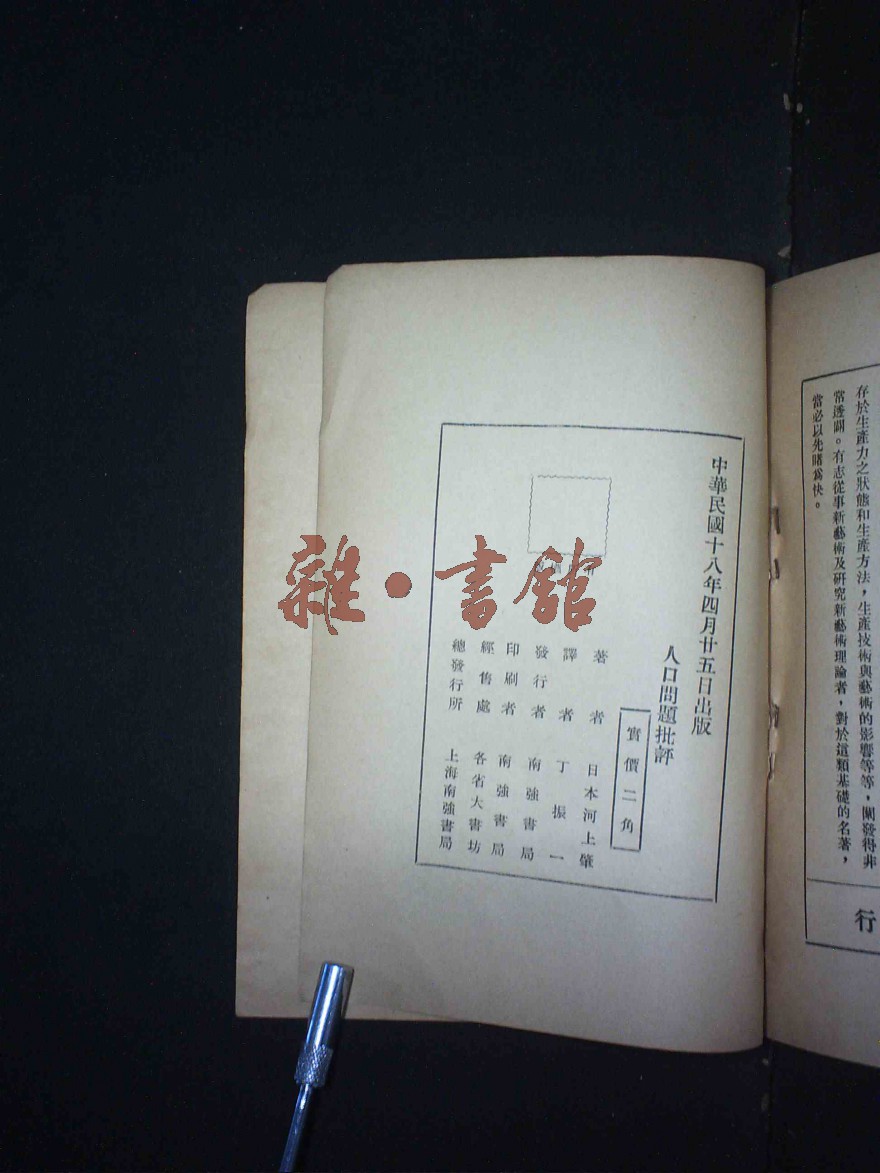 存於生產力之狀態和生產方法，生產技術與藝術的影響等等，闡發得非
常透闢。有志從事新藝術及研究新藝術理論者，對於這類基礎的名著，
當必以先睹為快。
行
中華民國十八年四月廿五日出版
人口問題批評
實價二角
著者 日本河上肇
譯者 丁振一
發行者 南強書局
印刷者 南強書局
經售處 各省大書坊
總發行所 上海南強書局
雜·書館